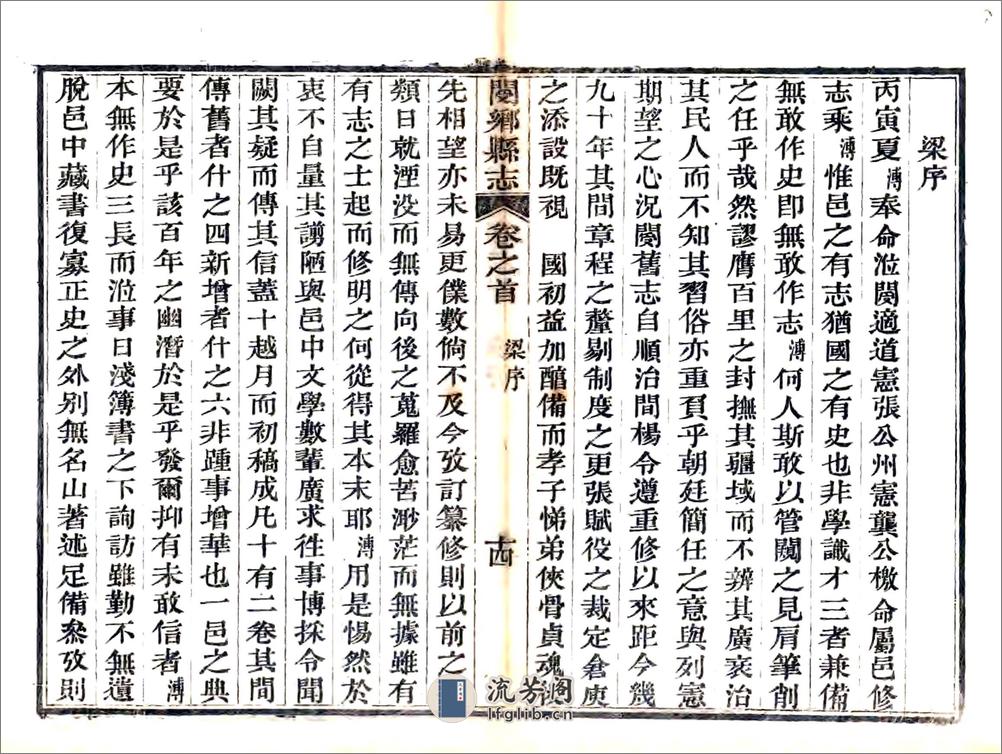 梁序
丙寅夏溥奉命涖閿適道憲張公州憲龔公檄命屬邑修
志乘溥惟邑之有志猶國之有史也非學識才三者兼備
無敢作史即無敢作志溥何人斯敢以管闚之見肩筆削
之任乎哉然謬膺百里之封撫其疆域而不辨其廣袤治
其民人而不知其習俗亦重負乎朝廷簡任之意與列憲
期望之心況閿舊志自順治間楊令遵重修以來距今幾
九十年其間章程之釐剔制度之更張賦役之裁定倉庾
之添設既視 國初益加醕備而孝子悌弟俠骨貞魂
閿鄉縣志 卷之首 梁序 十四
先相望亦未易更僕數倘不及今攷訂纂修則以前之
類日就湮没而無傳向後之蒐羅愈苦渺茫而無據雖有
有志之士起而修明之何從得其本末耶溥用是惕然於
衷不自量其謭陋與邑中文學數輩廣求徃事博採令聞
闕其疑而傳其信蓋十越月而初稿成凡十有二卷其間
傳舊者什之四新增者什之六非踵事增華也一邑之典
要於是乎該百年之幽潛於是乎發爾抑有未敢信者溥
本無作史三長而涖事日淺簿書之下詢訪雖勤不無遺
脫邑中藏書復寡正史之外别無名山著述足備叅攷則
流芳阁
lfglib.cn